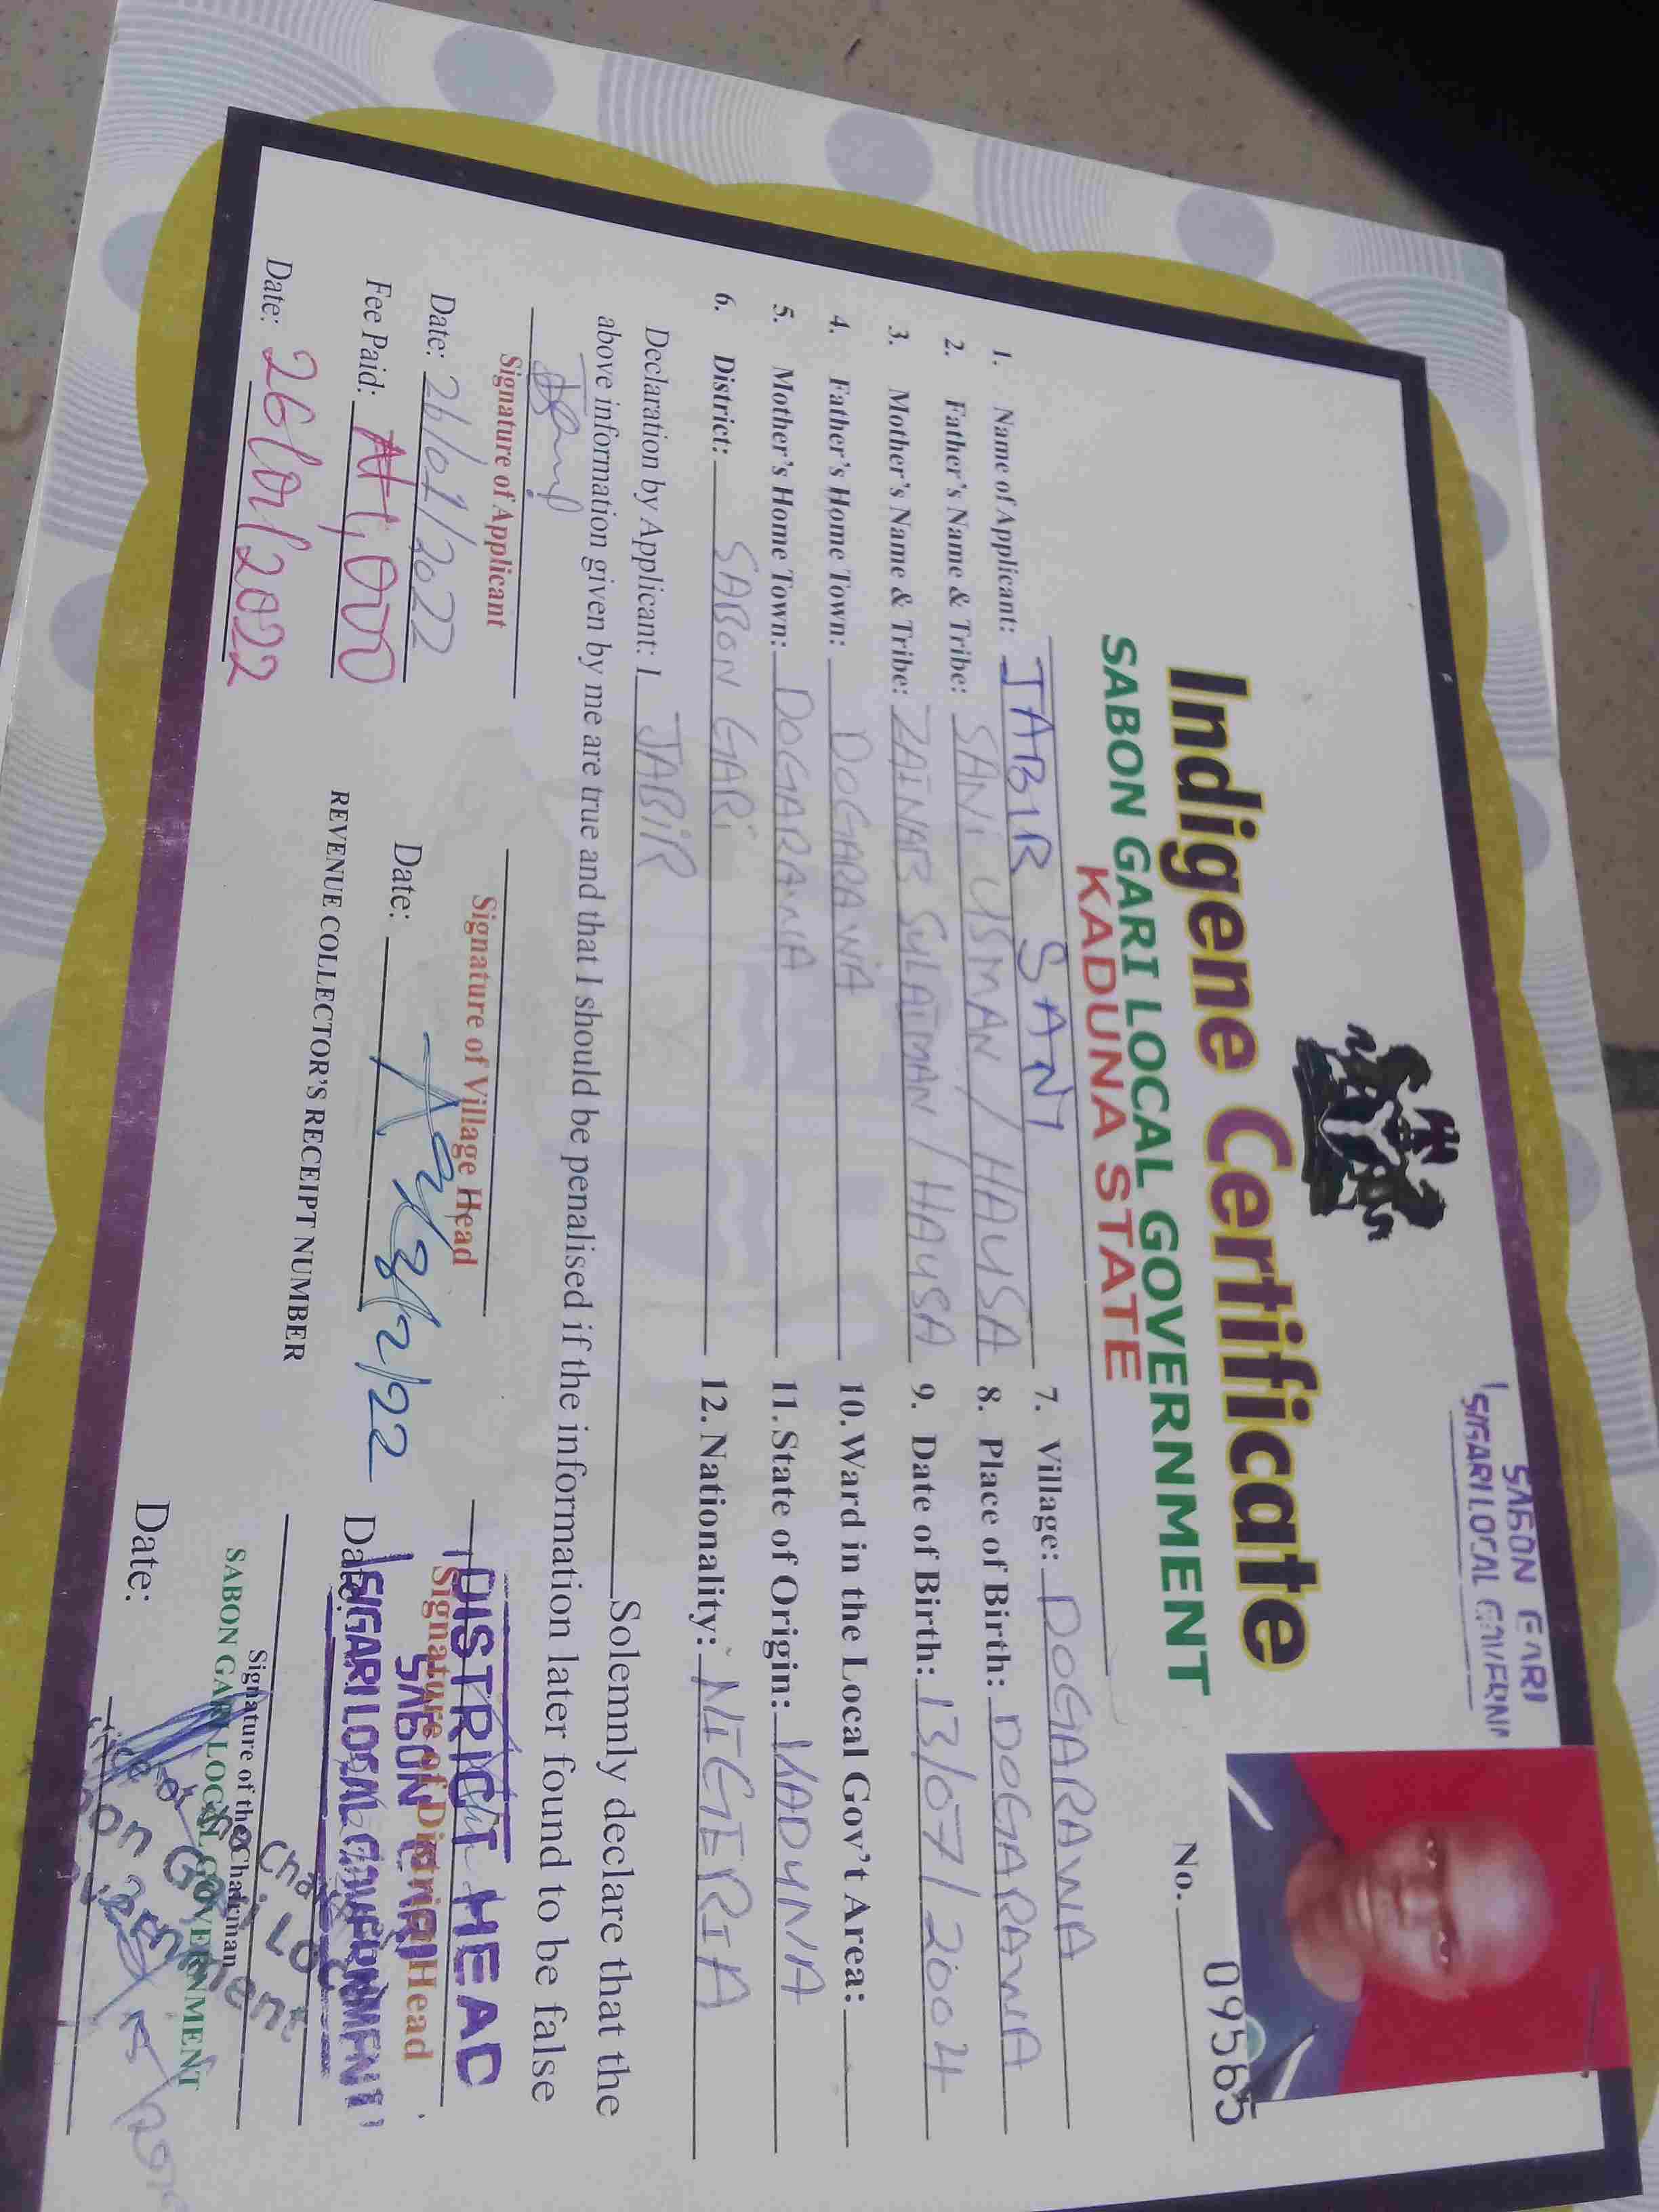 SABON GARI
SIGARI LOCAL GOVERNM
Indigene Certificate
SABON GARI LOCAL GOVERNMENT
KADUNA STATE
No. 09565
1. Name of Applicant: JABIR SANI
2. Father's Name & Tribe: SANI USMAN / HAUSA
3. Mother's Name & Tribe: ZAINAB SULAIMAN / HAUSA
4. Father's Home Town: DOGARAWA
5. Mother's Home Town: DOGARAWA
6. District: SABON GARI
7. Village: DOGARAWA
8. Place of Birth: DOGARAWA
9. Date of Birth: 13/07/2004
10. Ward in the Local Gov't Area:
11. State of Origin: KADUNA
12. Nationality: NIGERIA
Declaration by Applicant: I JABIR Solemnly declare that the
above information given by me are true and that I should be penalised if the information later found to be false
Signature of Applicant
Date: 26/01/2022
Fee Paid: ₦1,000
Date: 26/01/2022
Signature of Village Head
Date: 3/2/22
REVENUE COLLECTOR'S RECEIPT NUMBER
DISTRICT HEAD
Signature of District Head
SABON GARI
Date:
SIGARI LOCAL GOVERNMENT
Signature of the Chairman
SABON GARI LOCAL GOVERNMENT
Date: